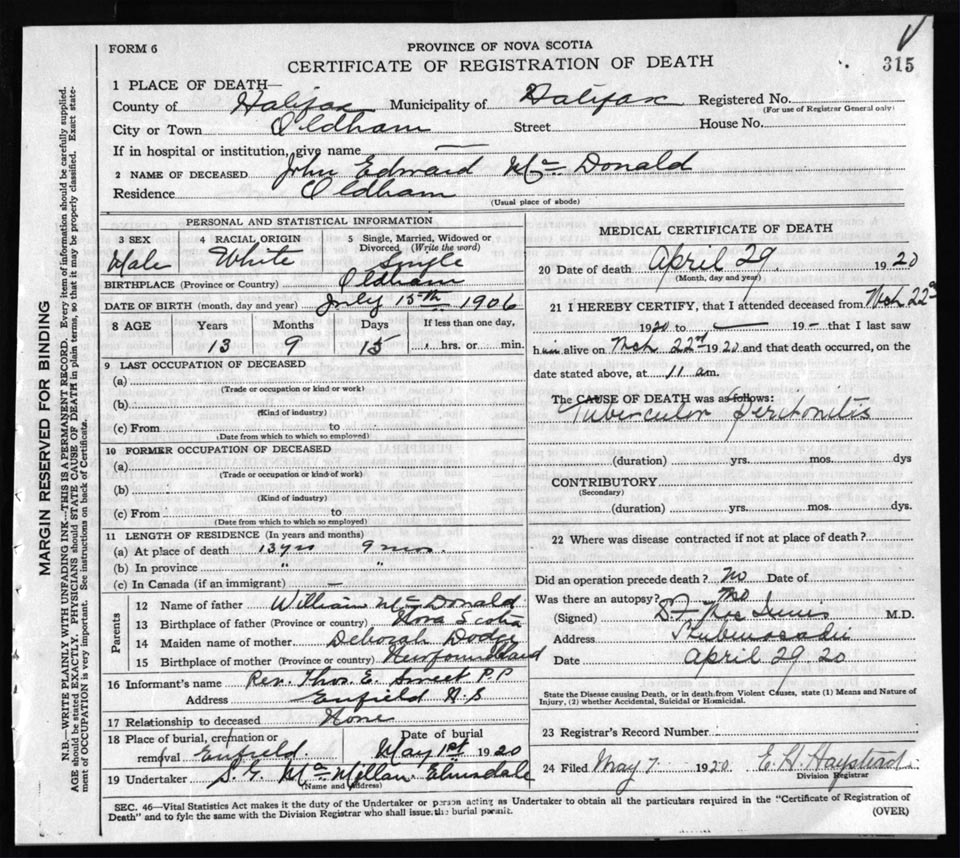 FORM 6
PROVINCE OF NOVA SCOTIA
CERTIFICATE OF REGISTRATION OF DEATH
315
1 PLACE OF DEATH—
County of Halifax Municipality of Halifax Registered No.
(For use of Registrar General only)
City or Town Oldham Street House No.
If in hospital or institution, give name —
2 NAME OF DECEASED John Edward Mc Donald
Residence Oldham
(Usual place of abode)
PERSONAL AND STATISTICAL INFORMATION
3 SEX Male
4 RACIAL ORIGIN White
5 Single, Married, Widowed or Divorced (Write the word) Single
BIRTHPLACE (Province or Country) Oldham
DATE OF BIRTH (month, day and year) July 15th 1906
8 AGE Years Months Days If less than one day,
13 9 15 hrs. or min.
9 LAST OCCUPATION OF DECEASED
(a)
(Trade or occupation or kind or work)
(b)
(Kind of industry)
(c) From to
(Date from which to which so employed)
10 FORMER OCCUPATION OF DECEASED
(a)
(Trade or occupation or kind of work)
(b)
(Kind of industry)
(c) From to
(Date from which to which so employed)
11 LENGTH OF RESIDENCE (In years and months)
(a) At place of death 13 yrs 9 mos.
(b) In province " "
(c) In Canada (if an immigrant) —
Parents
12 Name of father William Mc Donald
13 Birthplace of father (Province or country) Nova Scotia
14 Maiden name of mother Deborah Dodge
15 Birthplace of mother (Province or country) Newfoundland
16 Informant's name Rev. Thos. E. Sweet P.P
Address Enfield N.S
17 Relationship to deceased None
18 Place of burial, cremation or removal Enfield. Date of burial May 1st 1920
19 Undertaker Mc Millan Elmsdale
(Name and address)
MEDICAL CERTIFICATE OF DEATH
20 Date of death April 29, 1920
(Month, day and year)
21 I HEREBY CERTIFY, that I attended deceased from Mch 22nd
1920 to — 19 — that I last saw
him alive on Mch 22nd 1920 and that death occurred, on the
date stated above, at 11 am.
The CAUSE OF DEATH was as follows:
Tubercular Peritonitis
(duration) yrs. mos. dys
CONTRIBUTORY
(Secondary)
(duration) yrs. mos. dys.
22 Where was disease contracted if not at place of death?
Did an operation precede death? No Date of
Was there an autopsy? No
(Signed) M.D.
Address
Date April 29 20
State the Disease causing Death, or in death from Violent Causes, state (1) Means and Nature of
Injury, (2) whether Accidental, Suicidal or Homicidal.
23 Registrar's Record Number
24 Filed May 7 1920 E. H.
Division Registrar
SEC. 46—Vital Statistics Act makes it the duty of the Undertaker or person acting as Undertaker to obtain all the particulars required in the "Certificate of Registration of
Death" and to fyle the same with the Division Registrar who shall issue the burial permit.
(OVER)
MARGIN RESERVED FOR BINDING
N.B.—WRITE PLAINLY WITH UNFADING INK—THIS IS A PERMANENT RECORD. Every item of information should be carefully supplied.
AGE should be stated EXACTLY. PHYSICIANS should STATE CAUSE OF DEATH in plain terms, so that it may be properly classified. Exact state-
ment of OCCUPATION is very important. See instructions on back of Certificate.